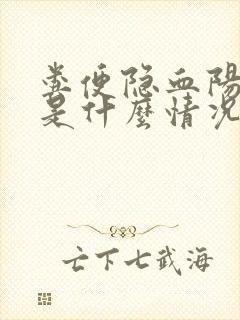 粪便隐血陽
是什麼情况
亡下七武海